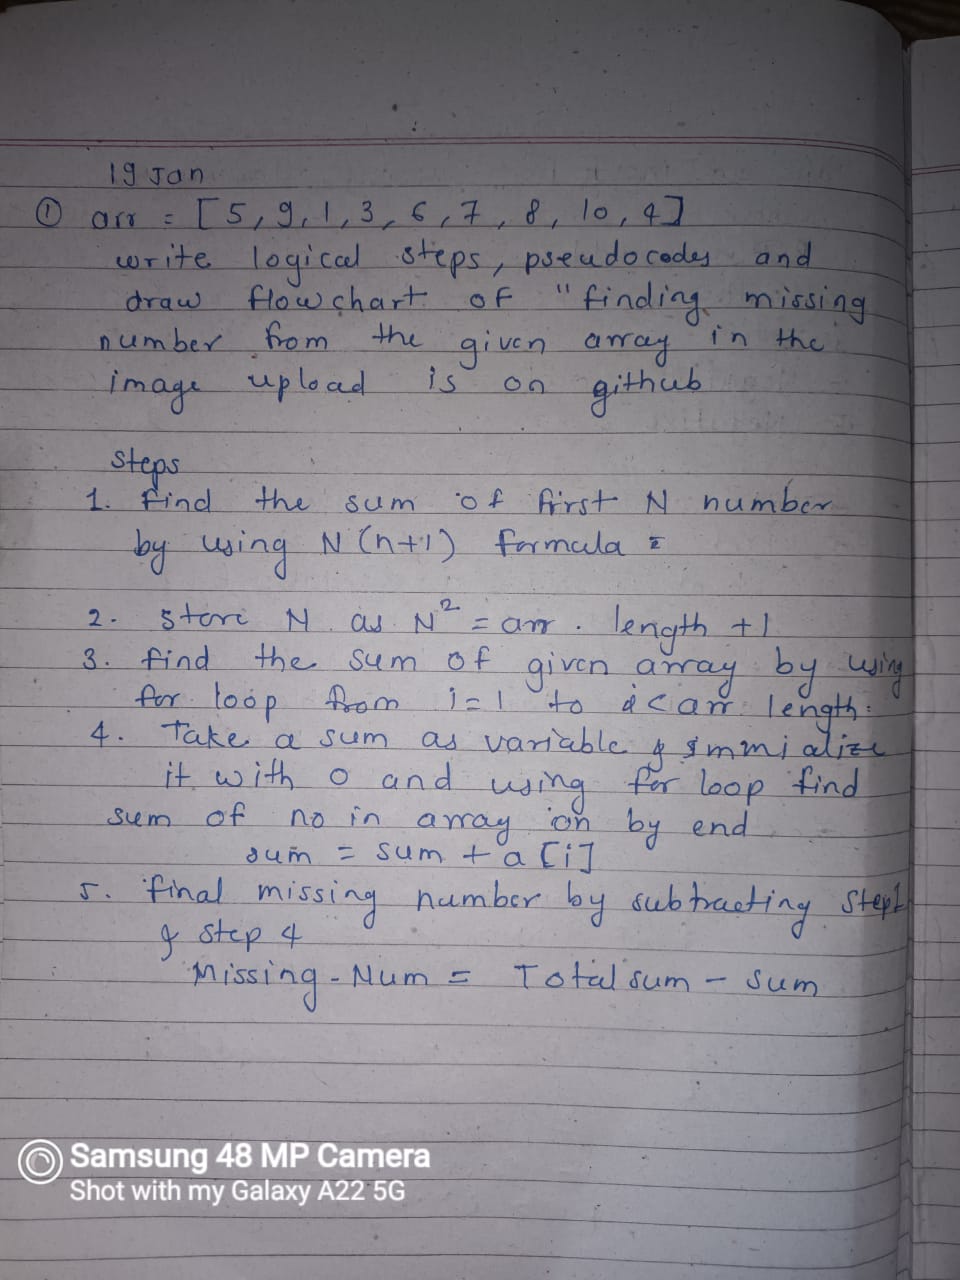 19 Jan
① arr = [5, 9, 1, 3, 6, 7, 8, 10, 4]
write logical steps, pseudocodes and
draw flowchart of "finding missing
number from the given array in the
image upload is on github
Steps
1. find the sum of first N number
by using N(n+1) formula =
2
2. store N as N = arr. length +1
3. find the sum of given array by using
for loop from i=1 to i<arr. length:
4. Take a sum as variable & immialize
it with 0 and using for loop find
sum of no in array on by end
sum = sum + a[i]
5. final missing number by subtracting Step1
& step 4
Missing-Num = Total sum - sum
Samsung 48 MP Camera
Shot with my Galaxy A22 5G